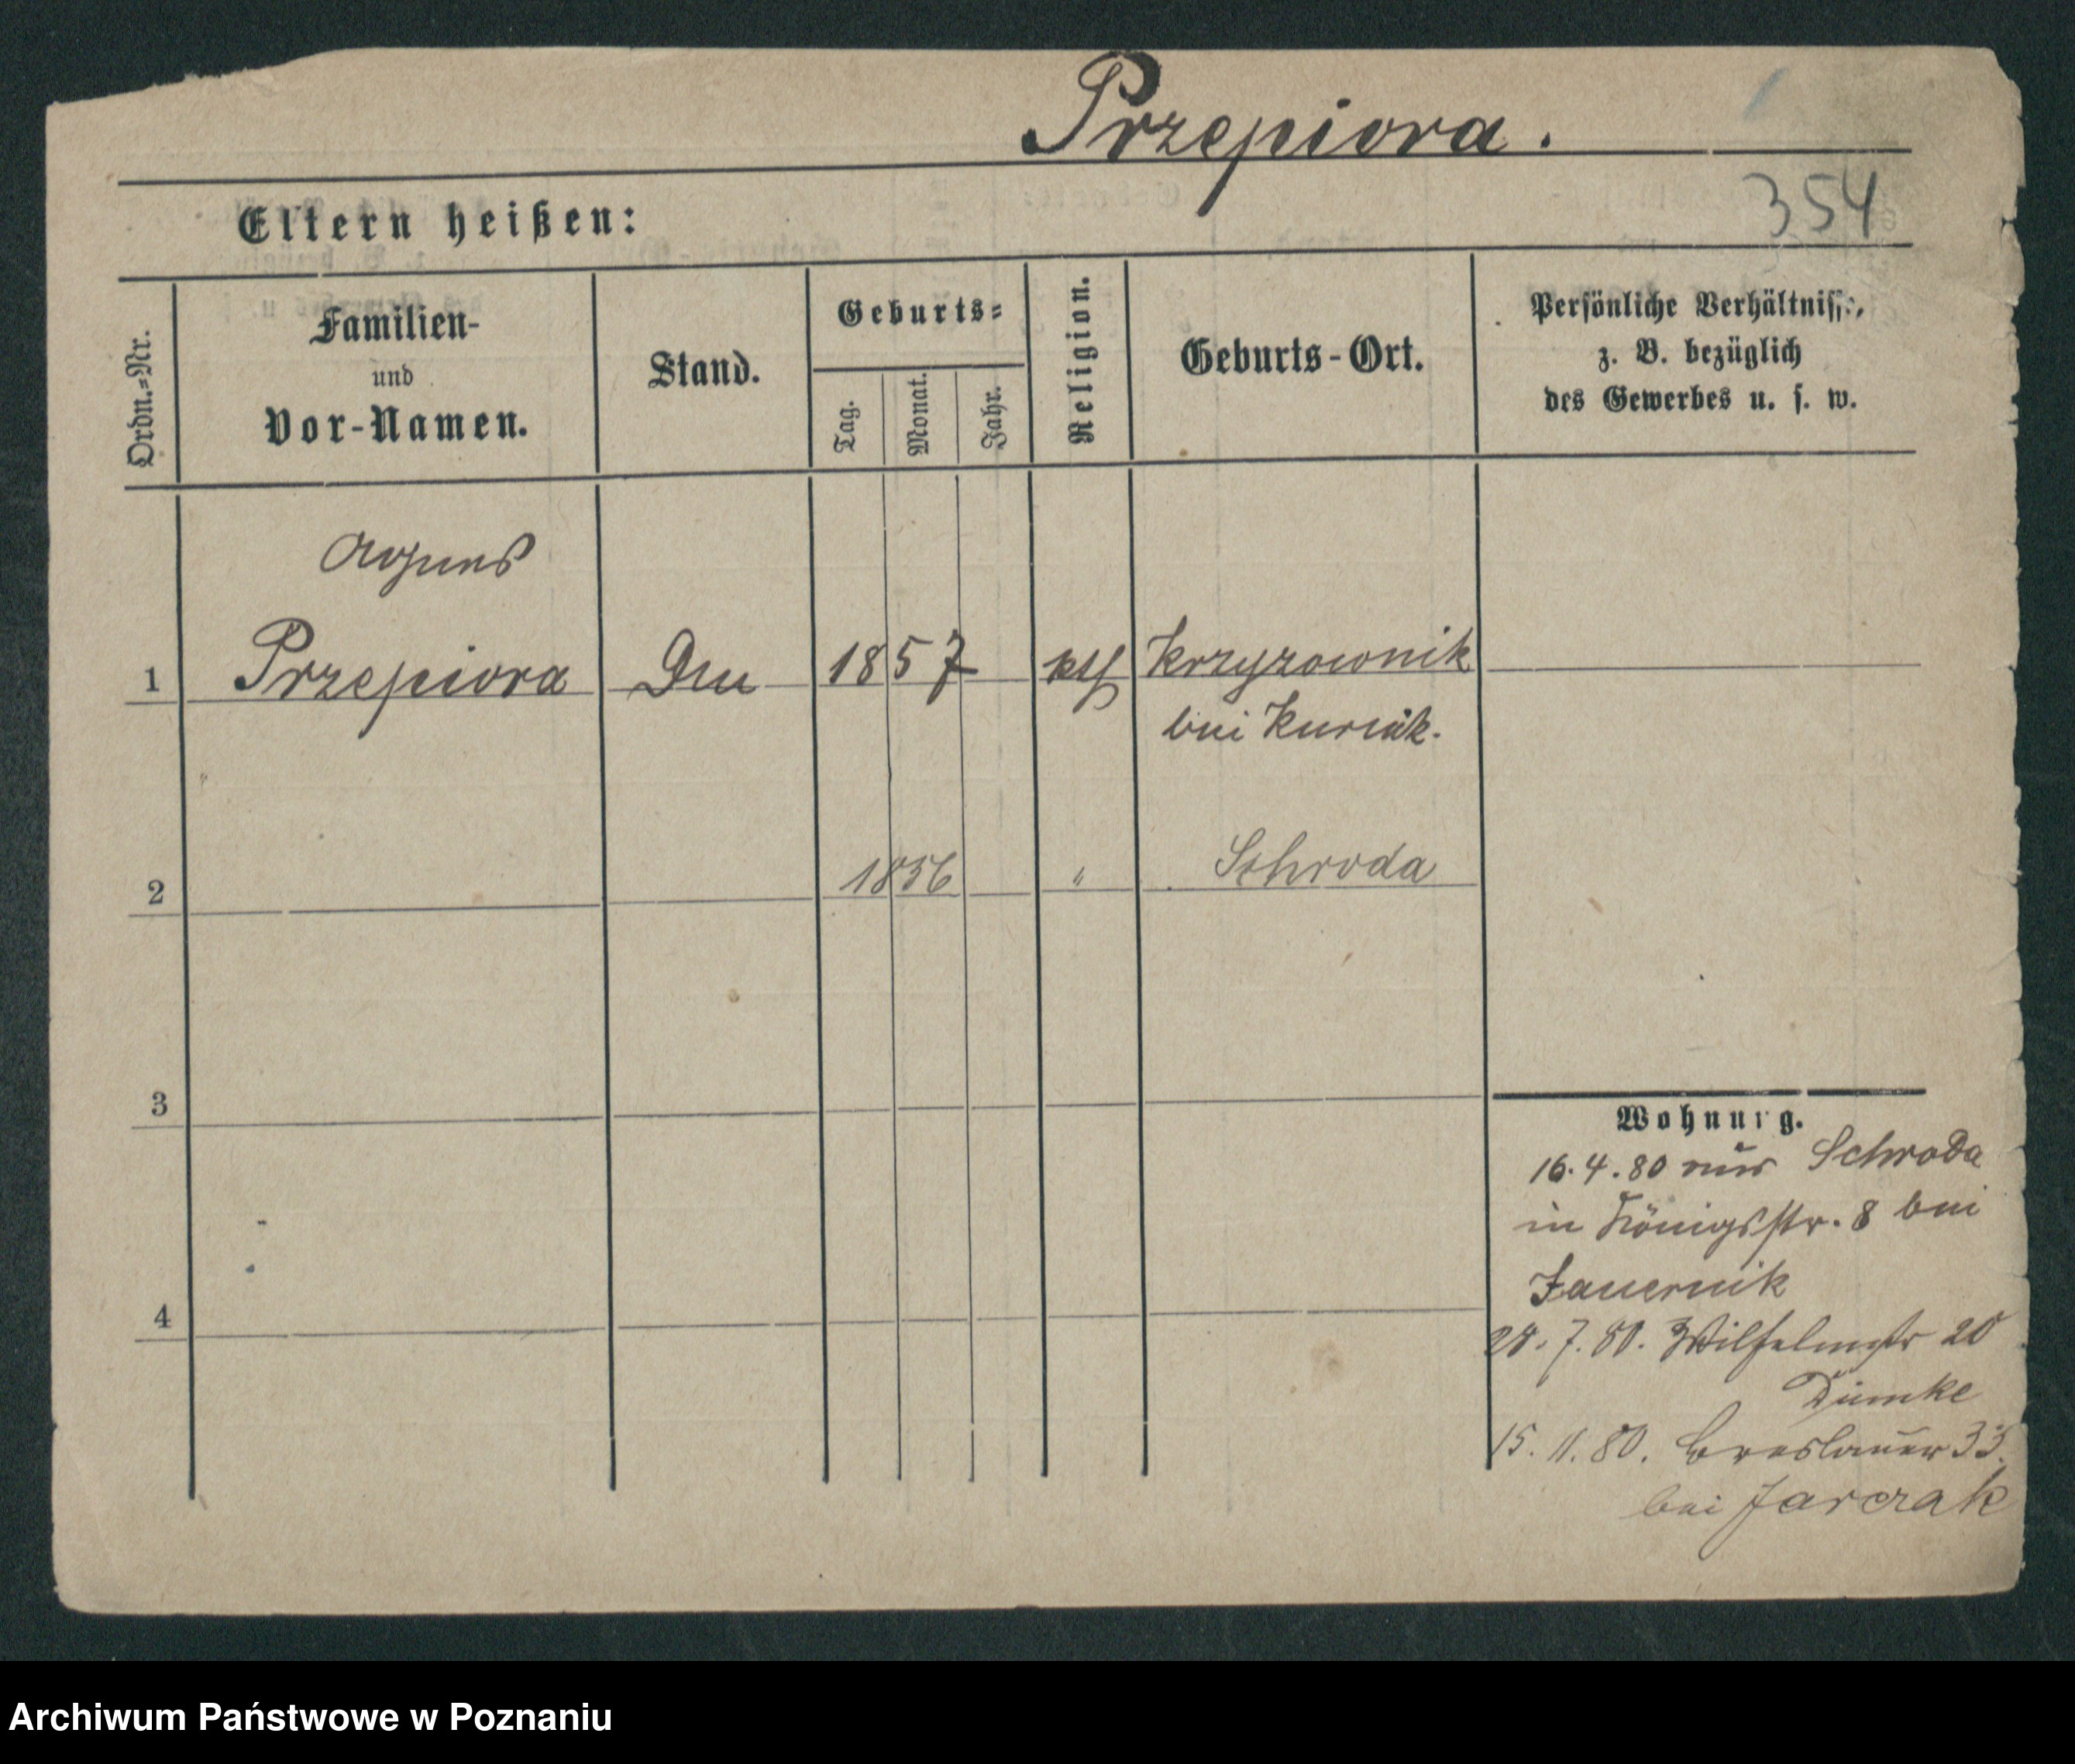 Przepiora.
354
Eltern heißen:
Ordn.=Nr.
Familien-
und
Vor-Namen.
Stand.
Geburts=
Tag.
Monat.
Jahr.
Religion.
Geburts-Ort.
Persönliche Verhältnisse,
z. B. bezüglich
des Gewerbes u. s. w.
Agnes
1 Przepiora 1857 kth Krzyzownik
bei Kurnik.
2 1856 " Schroda
3
Wohnung.
16.4.80 aus Schroda
in Königsstr. 8 bei
Jauernik
4
28.7.80. Wilhelmstr 20
Dümke
15.11.80. Breslauer 33.
bei Jarczak
Archiwum Państwowe w Poznaniu